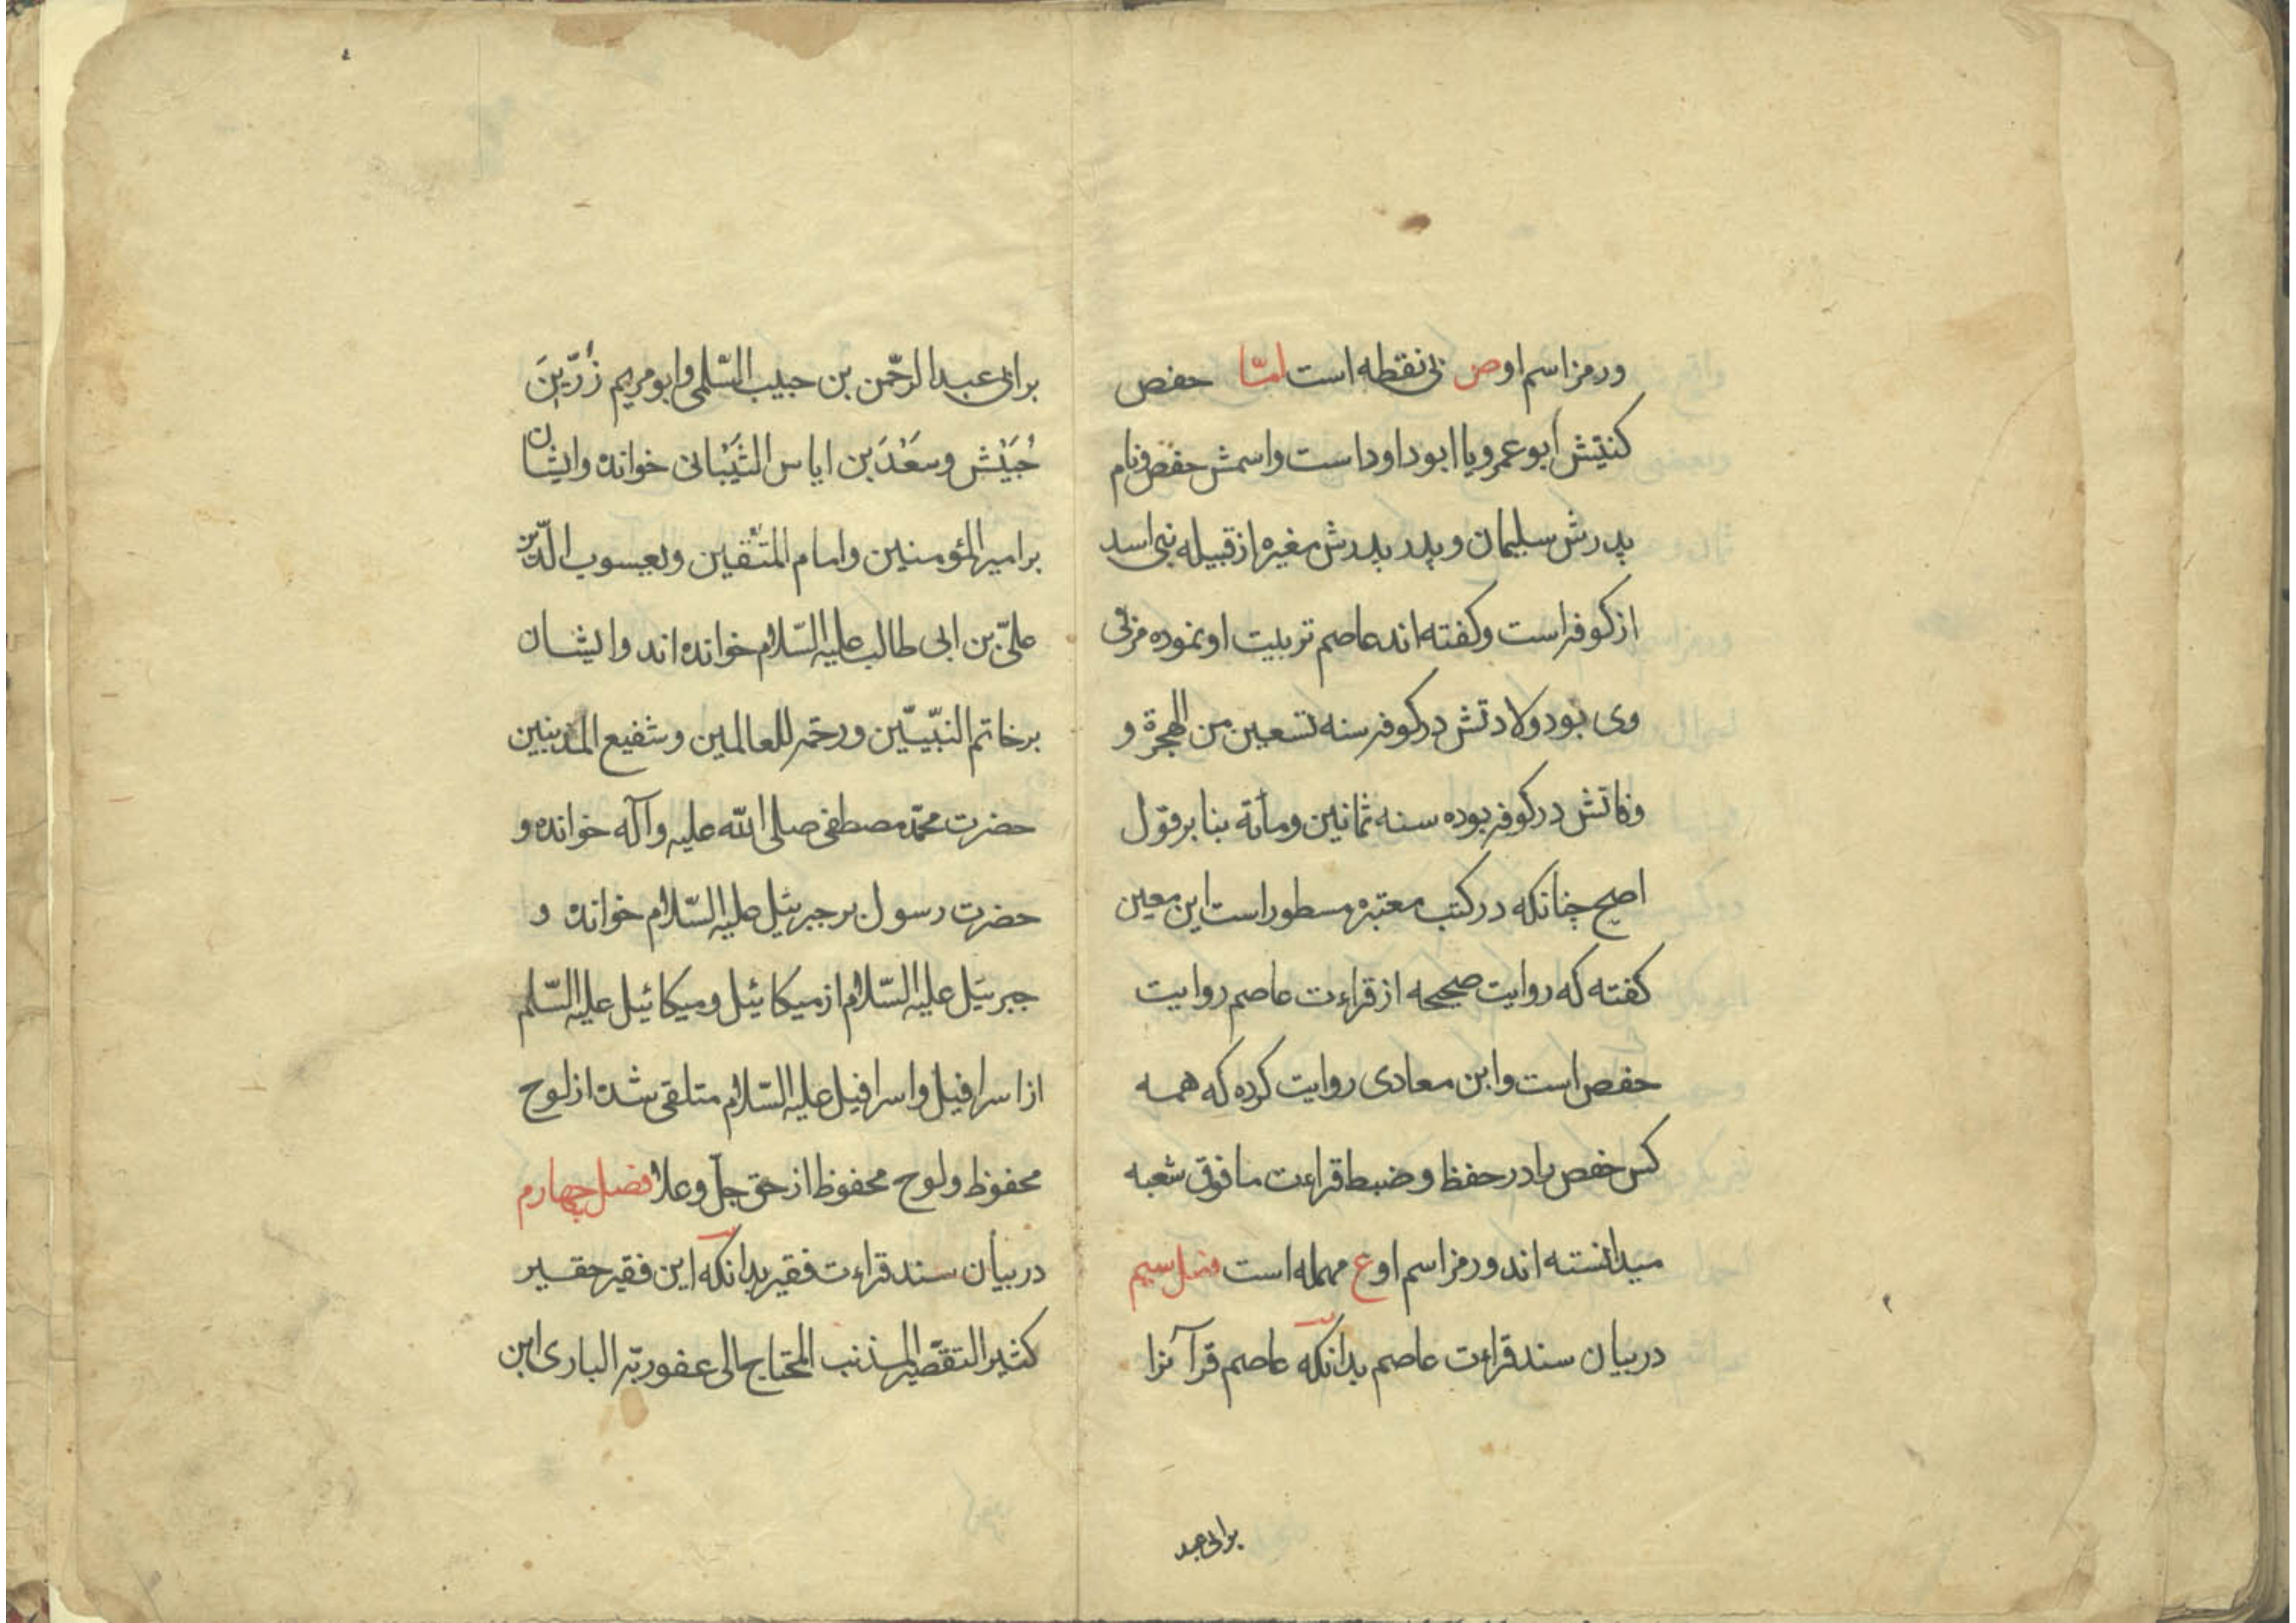 ورمز اسم او ص بی نقطه است امّا حفص
کنیتش ابو عمرو یا ابو داود است واسمش حفص ونام
پدرش سلیمان و پدر پدرش مغیره از قبیله بنی اسد
از کوفه است وکفته اند عاصم تربیت او نموده مزنی
وی بود ولادتش در کوفه سنه تسعین من الهجرة و
وفاتش در کوفه بوده سنه ثمانین ومأة بنا بر قول
اصح چنانکه در کتب معتبره مسطور است ابن معین
کفته که روایت صحیحه از قراءت عاصم روایت
حفص است وابن معادی روایت کرده که همه
کس حفص را در حفظ وضبط قراءت ما فوق شعبه
میدانسته اند ورمز اسم او ع مهمله است فصل سیم
در بیان سند قراءت عاصم بدانکه عاصم قرآنرا
برابی عبد
برابی عبد الرّحمن بن حبیب السّلمی وابو مریم زُرّ بن
حُبَیْش وسَعْد بن ایاس الشَّیْبانی خوانده وایشان
بر امیر المؤمنین وامام المتّقین ویعسوب الدّین
علیّ بن ابی طالب علیه السّلام خوانده اند وایشان
بر خاتم النبیّین ورحمه للعالمین وشفیع المذنبین
حضرت محمّد مصطفی صلی الله علیه وآله خوانده و
حضرت رسول بر جبرئیل علیه السّلام خوانده و
جبرئیل علیه السّلام از میکائیل ومیکائیل علیه السّلم
از اسرافیل واسرافیل علیه السّلام متلقی شده از لوح
محفوظ ولوح محفوظ از حق جلّ وعلا فصل چهارم
در بیان سند قراءت فقیر بدانکه این فقیر حقیر
کثیر التقصیر المذنب المحتاج الی عفو ربّه الباری ابن